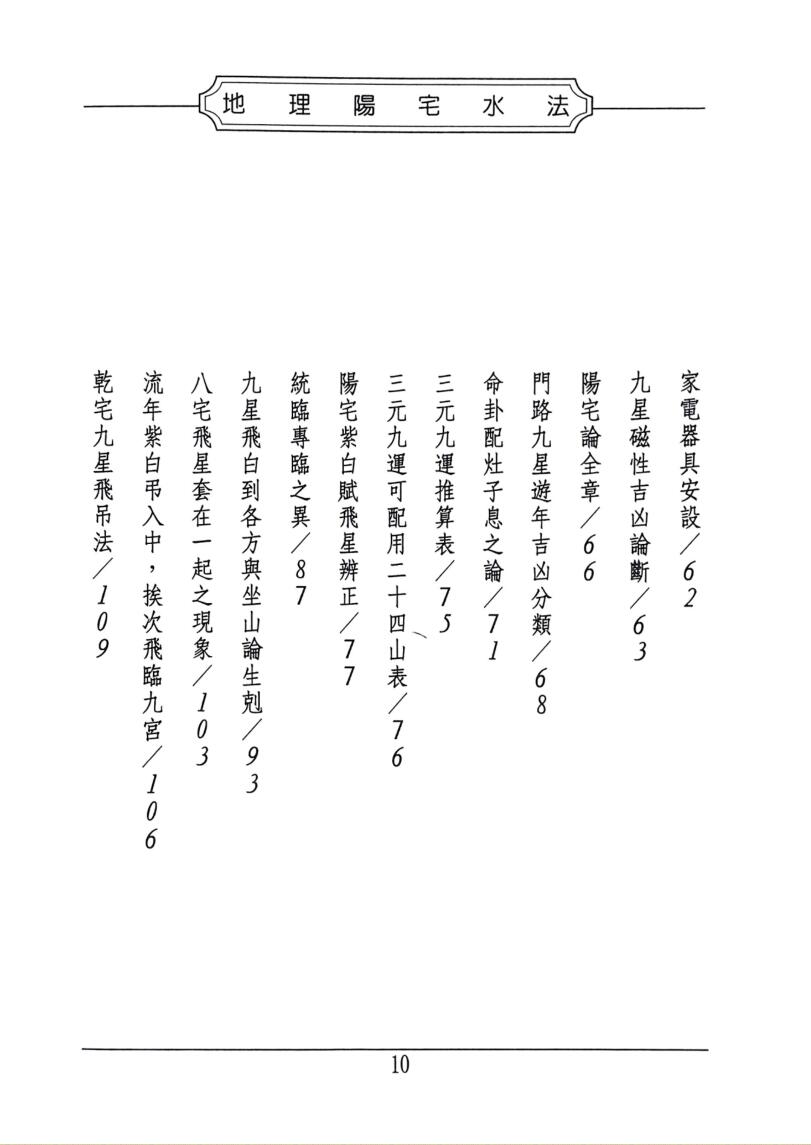 地理陽宅水法
家電器具安設／62
九星磁性吉凶論斷／63
陽宅論全章／66
門路九星遊年吉凶分類／68
命卦配灶子息之論／71
三元九運推算表／75
三元九運可配用二十四山表／76
陽宅紫白賦飛星辨正／77
統臨專臨之異／87
九星飛白到各方與坐山論生剋／93
八宅飛星套在一起之現象／103
流年紫白弔入中，挨次飛臨九宮／106
乾宅九星飛吊法／109
10